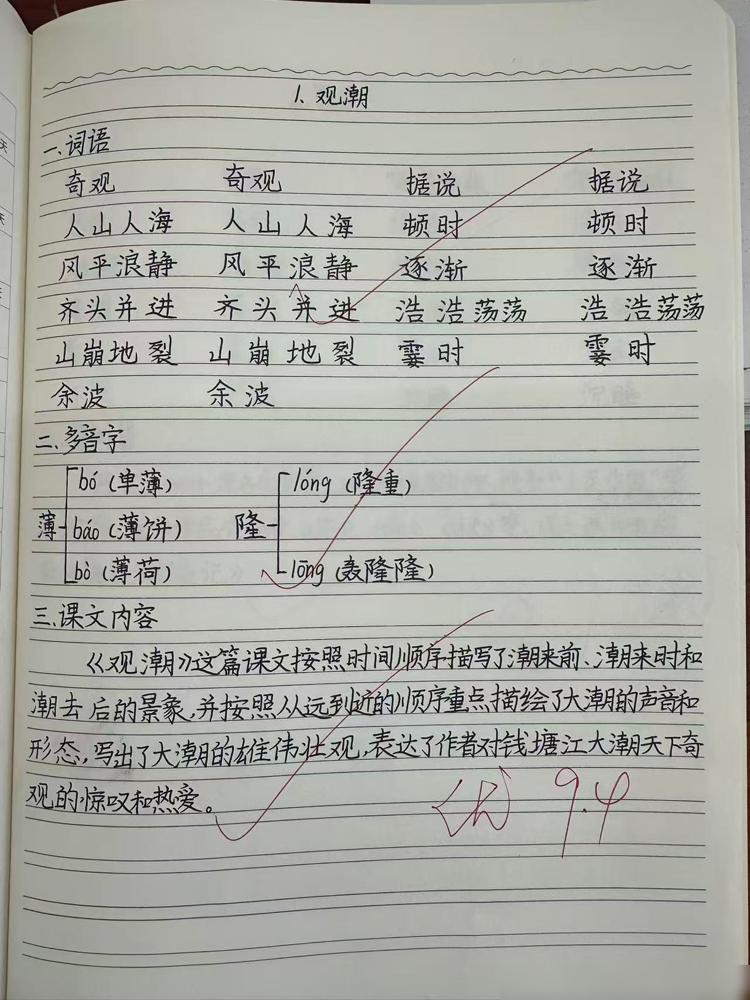 1、观潮
一、词语
奇观 奇观 据说 据说
人山人海 人山人海 顿时 顿时
风平浪静 风平浪静 逐渐 逐渐
齐头并进 齐头并进 浩浩荡荡 浩浩荡荡
山崩地裂 山崩地裂 霎时 霎时
余波 余波
二、多音字
薄 bó (单薄) 隆 lóng (隆重)
báo (薄饼)
bò (薄荷) lōng (轰隆隆)
三、课文内容
《观潮》这篇课文按照时间顺序描写了潮来前、潮来时和
潮去后的景象,并按照从远到近的顺序重点描绘了大潮的声音和
形态,写出了大潮的雄伟壮观,表达了作者对钱塘江大潮天下奇
观的惊叹和热爱。
9.4